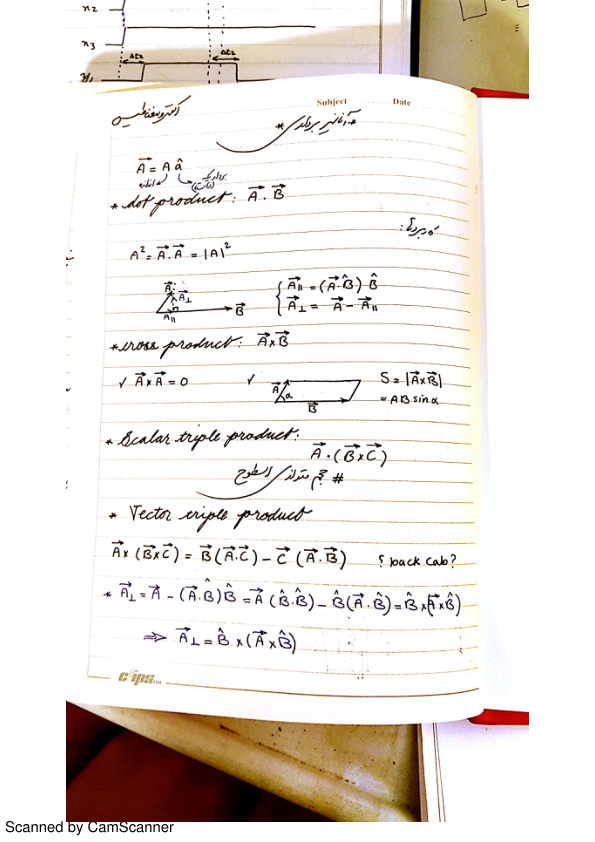 x₂
x₃
Δt₂ Δt₂
y₁
Subject Date
الکترومغناطیس
* آنالیز برداری *
A⃗ = A â
اندازه بردار یکه
* dot product: A⃗ . B⃗
کاربردها:
A² = A⃗ . A⃗ = |A|²
A⃗ A⃗⊥ A⃗∥ B⃗
A⃗∥ = (A⃗.B̂) B̂
A⃗⊥ = A⃗ - A⃗∥
* cross product: A⃗×B⃗
√ A⃗×A⃗ = 0 √ A⃗ α B⃗ S = |A⃗×B⃗|
= AB sinα
* Scalar triple product:
A⃗ . (B⃗×C⃗)
# حجم متوازی السطوح
* Vector triple product
A⃗× (B⃗×C⃗) = B⃗(A⃗.C⃗) - C⃗ (A⃗.B⃗) back cab?
* A⃗⊥ = A⃗ - (A⃗.B̂)B̂ = A⃗ (B̂.B̂) - B̂(A⃗.B̂) = B̂×(A⃗×B̂)
⇒ A⃗⊥ = B̂ × (A⃗×B̂)
clips
Scanned by CamScanner